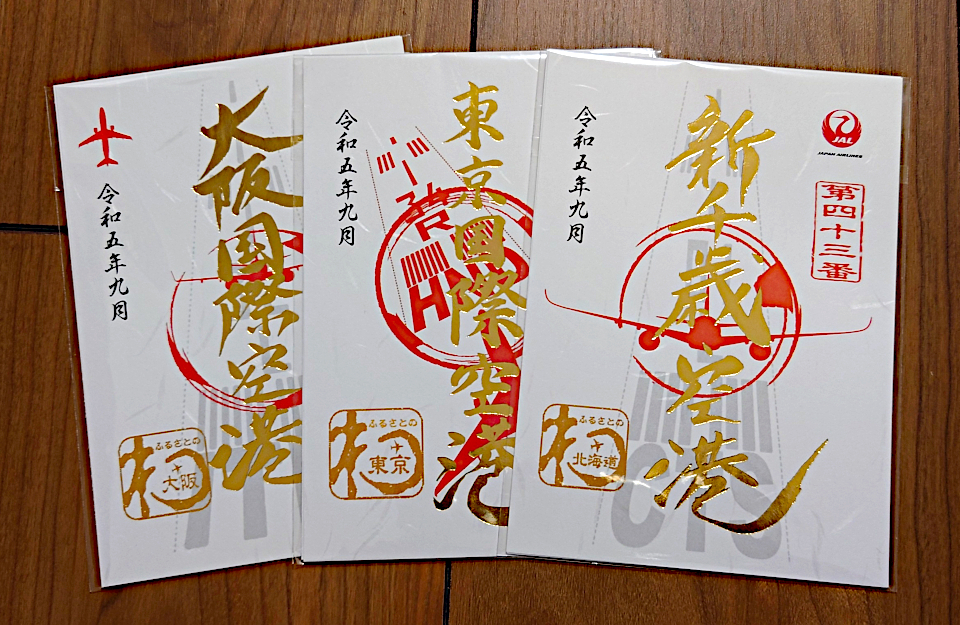 令和五年九月
大阪国際空港
ふるさとの
大阪
令和五年九月
東京国際空港
HND
ふるさとの
東京
JAL
JAPAN AIRLINES
第四十三番
新千歳空港
令和五年九月
CTS
ふるさとの
北海道